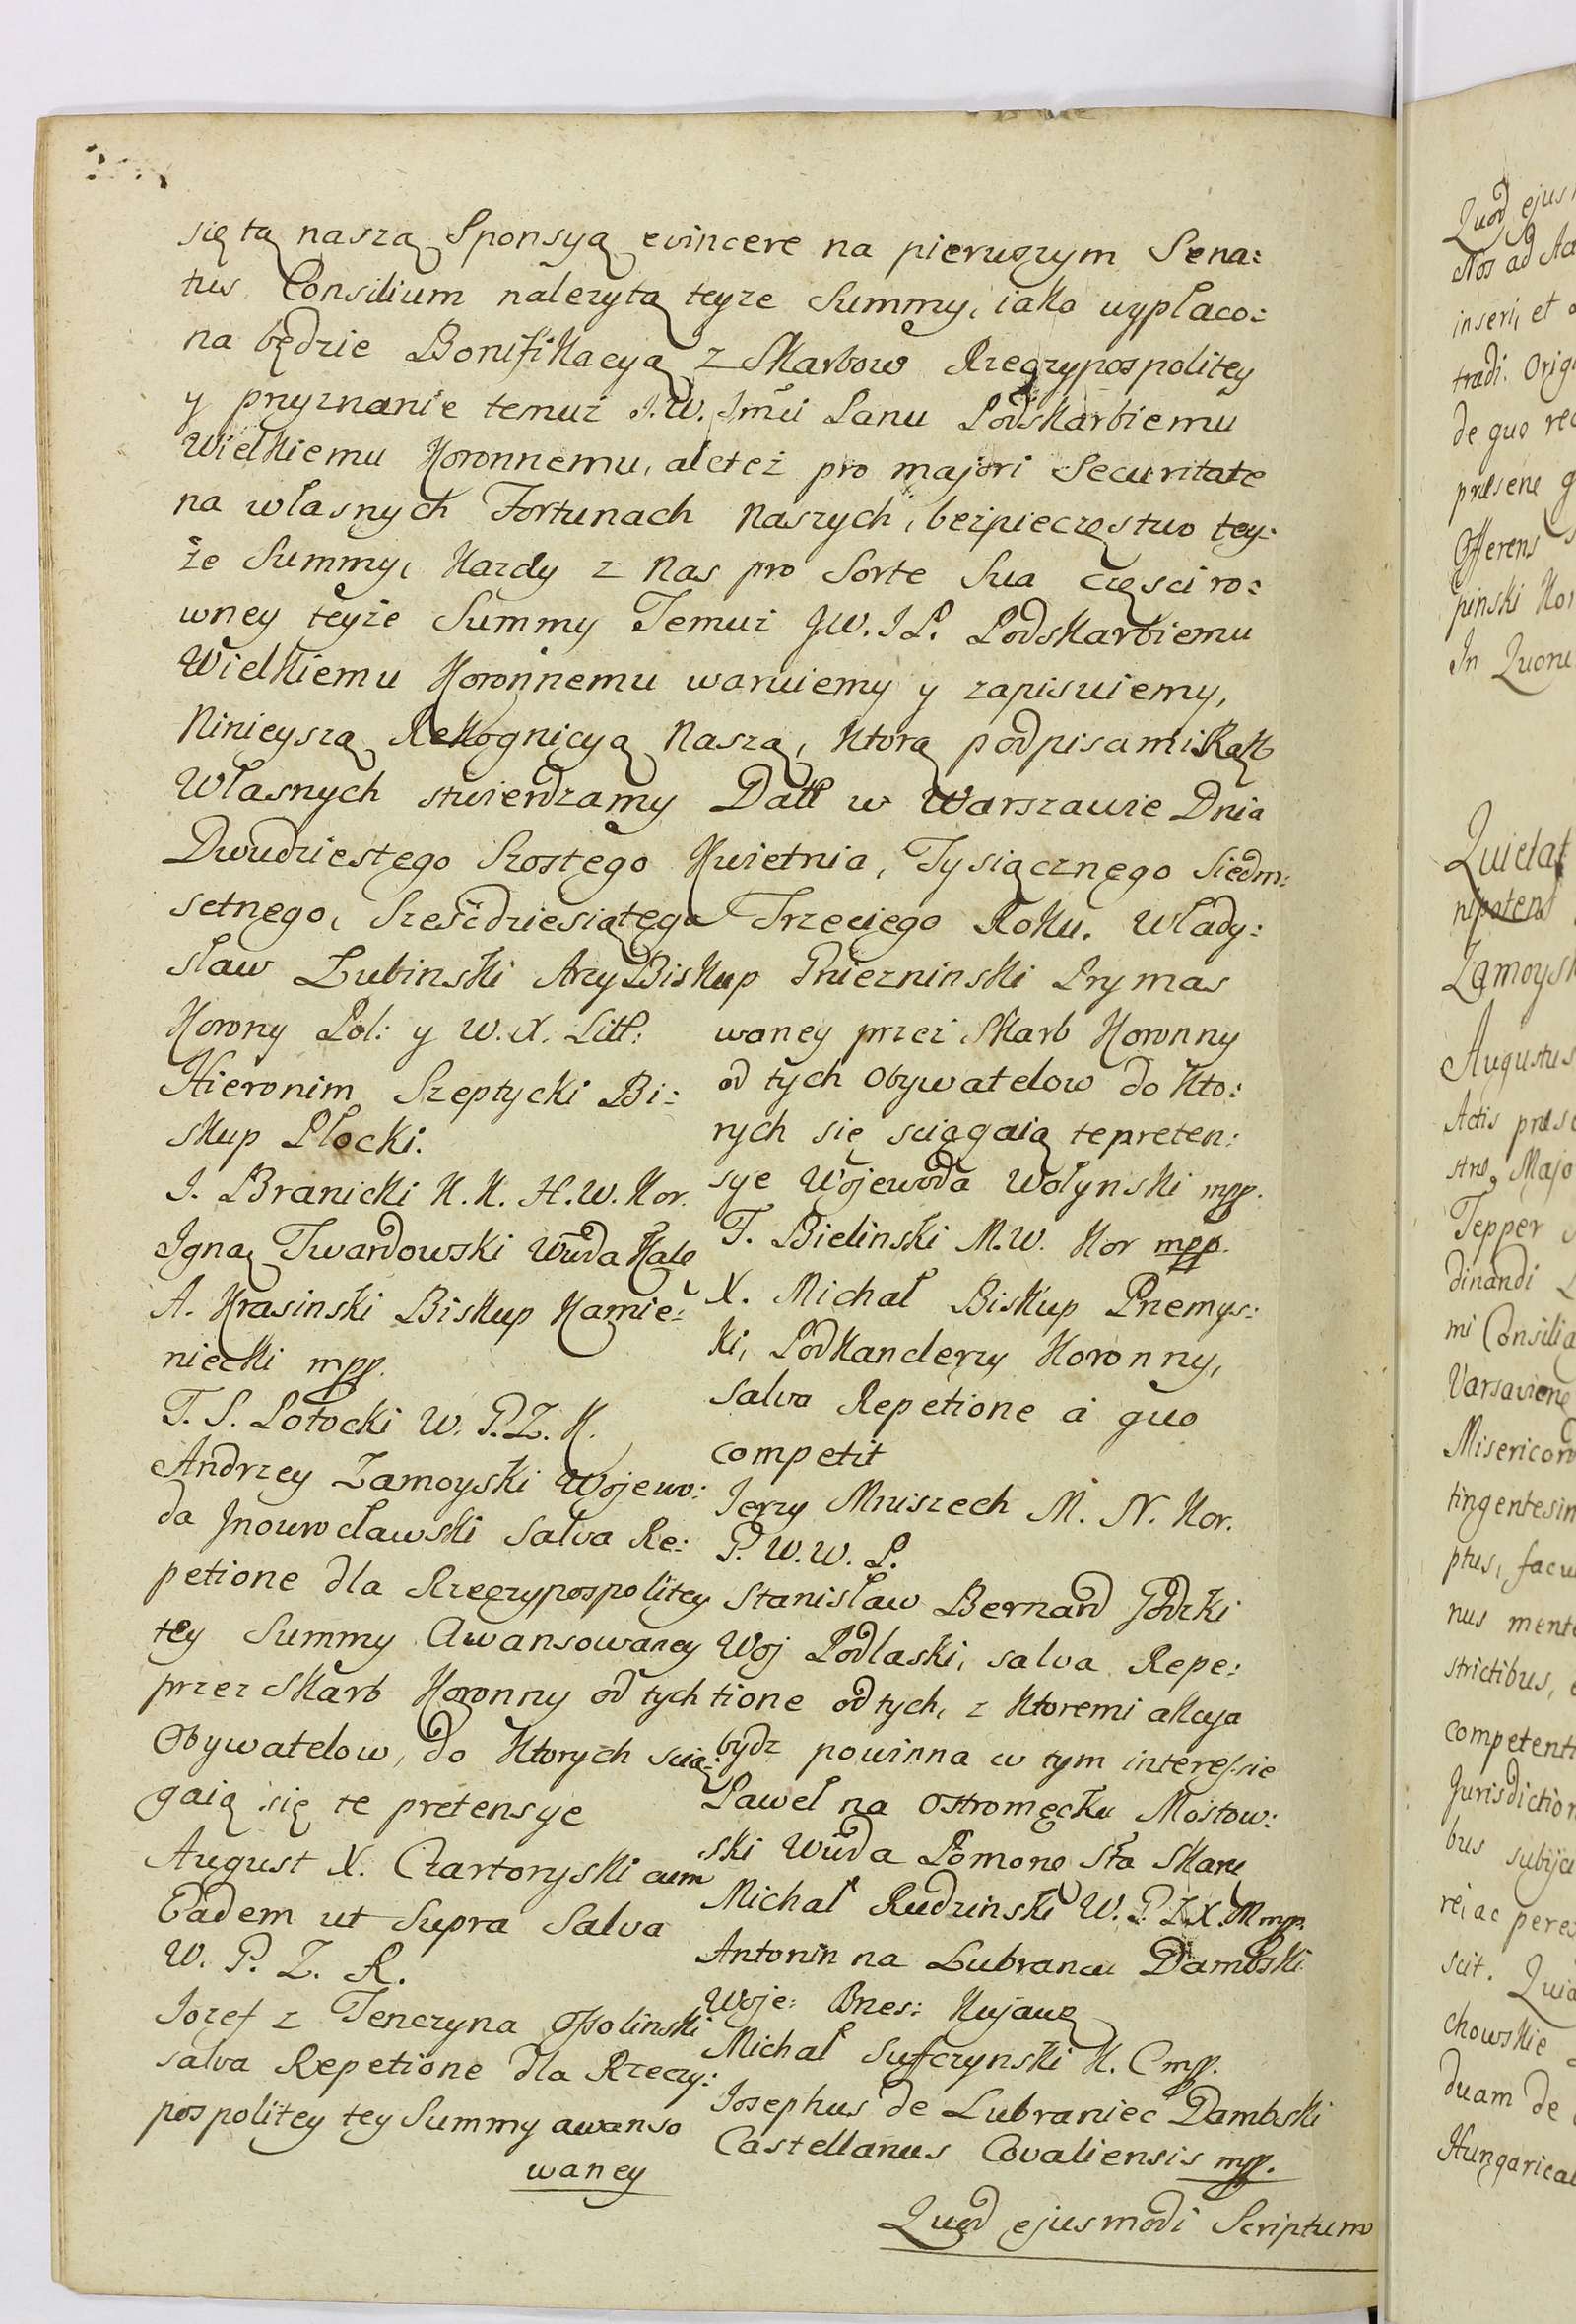 się tą naszą Sponsyą evincere na pierwszym Sena:
tus Consilium nalezytą teyze Summy, iako wypłaco:
na będzie Bonifikacyą z Skarbow Rzeczypospolitey
y przyznanie temuż J.W. Jmći Panu Podskarbiemu
Wielkiemu Koronnemu, ale też pro majori Securitate
na własnych Fortunach Naszych, beźpieczęstwo tey:
że Summy, Kazdy z Nas pro Sorte Sua części ro:
wney teyże Summy Temuż J.W. J P. Podskarbiemu
Wielkiemu Koronnemu waruiemy y zapisuiemy,
Ninieyszą Rekognicyą Naszą, Ktorą podpisami Rąk
Własnych stwierdzamy Datt w Warszawie Dnia
Dwudziestego Szostego Kwietnia, Tysiącznego Siedm:
setnego, Sześćdziesiątego Trzeciego Roku. Włady:
sław Łubinski ArcyBiskup Gniezninski Prymas
Korony Pol: y W. X. Litt:
Hieronim Szeptycki Bi:
skup Płocki.
J. Branicki K. K. H. W. Kor.
Ignaą Twardowski Wwda Kale
A. Krasinski Biskup Kamie:
niecki mpp.
T. S. Potocki W. P. Z. K.
Andrzey Zamoyski Wojewo:
da Jnowrocławski Salva Re:
petione dla Rzeczypospolitey
tey Summy Awansowaney
przez Skarb Koronny od tych
Obywatelow, do Ktorych scią:
gaią się te pretensye
August X. Czartoryski cum
Eadem ut Supra Salva
W. P. Z. R.
Jozef z Tenczyna Ossolinski
salva Repetione dla Rzeczy:
pospolitey tey Summy awanso
waney
waney przez Skarb Koronny
od tych Obywatelow do Kto:
rych się sciągaią te preten:
sye Wojewoda Wołynski mpp.
F. Bielinski M. W. Kor mpp.
X. Michał Biskup Przemys:
ki, Podkanclerzy Koronny,
salva Repetione a quo
competit
Jerzy Mniszech M. N. Kor.
P. W. W. P.
Stanisław Bernard Godzki
Woj Podlaski, salva Repe:
tione od tych, z Ktoremi akcya
bydz powinna w tym interessie
Paweł na Ostromęcku Mostow:
ski Wwda Pomorz Sta
Michał Rudzinski W. P. Z. X. M mpp.
Antonin na Lubrancu Dambski
Woje: Brzes: Kujaw
Michał Sufczynski K. C mpp.
Josephus de Lubraniec Dambski
Castellanus Covaliensis mpp.
Quod ejusmodi Scriptum
Quod ejus
Nos ad Ac
inseri, et
tradi. Orig
de quo rec
præsens
Offerens
pinski Kor
In Quoru
Quietat
nipotens
Zamoysk
Augustus
Actis præs
stræ Majo
Tepper
dinandi
mi Consilia
Varsaviens
Misericor
tingentesim
ptus, facu
nus mente
strictibus,
competent
Jurisdiction
bus subijci
rei ac pere
scit. Quia
chowskie
duam de
Hungarical